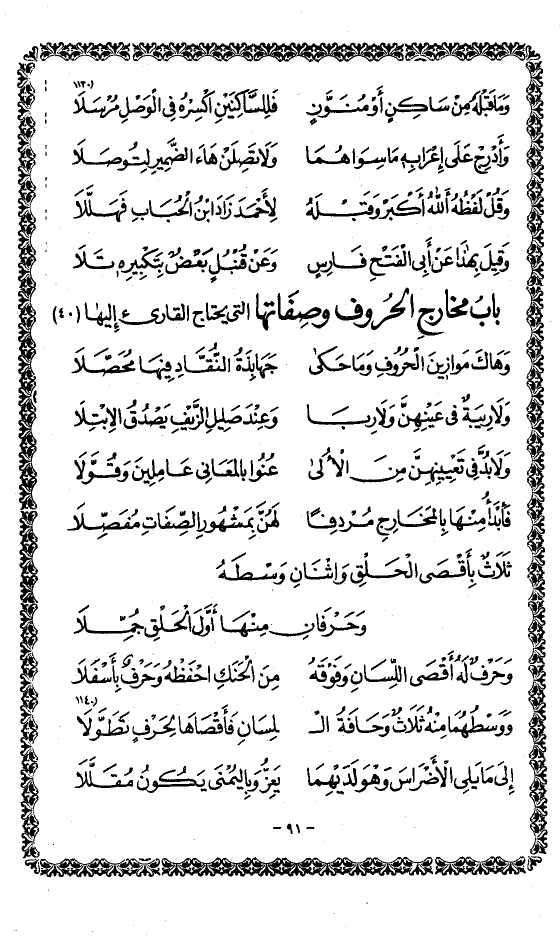 (١١٣٠
وَمَا قَبْلَهُ مِنْ سَاكِنٍ أَوْ مُنَوَّنٍ فَلِلسَّاكِنَيْنِ اكْسِرْهُ فِي الْوَصْلِ مُرْسَلَا
وَأَدْرِجْ عَلَى إِعْرَابِهِ مَا سِوَاهُمَا وَلَا تَصِلَنْ هَاءَ الضَّمِيرِ لِتُوصَلَا
وَقُلْ لَفْظُهُ اللهُ أَكْبَرْ وَقَبْلَهُ لِأَحْمَدَ زَادَ ابْنُ الْحُبَابِ فَهَلَّلَا
وَقِيلَ بِهٰذَا عَنْ أَبِي الْفَتْحِ فَارِسٍ وَعَنْ قُنْبُلٍ بَعْضٌ بِتَكْبِيرِهِ تَلَا
بَابُ مَخَارِجِ الْحُرُوفِ وَصِفَاتِهَا التي يحتاج القارىء إليها (٤٠)
وَهَاكَ مَوَازِينَ الْحُرُوفِ وَمَا حَكَى جَهَابِذَةُ النُّقَّادِ فِيهَا مُحَصَّلَا
وَلَا رِيبَةٌ فِي عَيْنِهِنَّ وَلَا رِبَا وَعِنْدَ صَلِيلِ الزَّيْفِ يَصْدُقُ الِابْتِلَا
وَلَا بُدَّ فِي تَعْيِينِهِنَّ مِنَ الْأُلَى عُنُوا بِالْمَعَانِي عَامِلِينَ وَقُوَّلَا
فَابْدَأْ مِنْهَا بِالْمَخَارِجِ مُرْدِفًا لَهُنَّ بِمَشْهُورِ الصِّفَاتِ مُفَصِّلَا
ثَلَاثٌ بِأَقْصَى الْحَلْقِ وَاثْنَانِ وَسْطَهُ
وَحَرْفَانِ مِنْهَا أَوَّلَ الْحَلْقِ جُمِّلَا
وَحَرْفٌ لَهُ أَقْصَى اللِّسَانِ وَفَوْقَهُ مِنَ الْحَنَكِ احْفَظْهُ وَحَرْفٌ بِأَسْفَلَا
(١١٤٠
وَوَسْطُهُمَا مِنْهُ ثَلَاثٌ وَحَافَةُ الْـ ـلِسَانِ فَأَقْصَاهَا لِحَرْفٍ تَطَوَّلَا
إِلَى مَا يَلِي الْأَضْرَاسَ وَهْوَ لَدَيْهِمَا يَعِزُّ وَبِالْيُمْنَى يَكُونُ مُقَلَّلَا
- ٩١ -